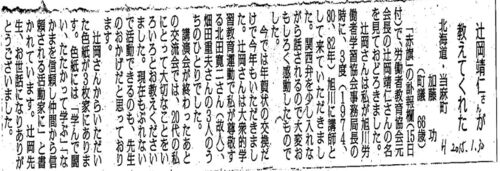 辻岡靖仁さんが
教えてくれた
北海道・当麻町 加藤 功
(町議 68歳)
H 2015.1.30
「赤旗」の訃報欄(15日
付)で、労働者教育協会元
会長の辻岡靖仁さんの名
を見ておどろきました。
辻岡さんは私が旭川労
働者学習協会事務局長の
時に、3度(1974、
80、82年)、旭川に講師と
して来ていただきまし
た。関西弁を少し入れな
がら話されるので大変お
もしろく感動したもので
す。
今では年賀状の交換だ
け(今年もいただきまし
た。辻岡さんは大衆的学
習教育運動で私が尊敬す
る北田寛二さん(故人)、
畑田重夫さんの3人のう
ちの1人です。
講演会が終わったあと
の交流会では、20代の私
にとって大切なことをい
ろいろとお教えください
ました。現在もがんばっ
て活動できるのも、先生
のおかげだと思っており
ます。
辻岡さんからいただい
た色紙が3枚家にありま
す。色紙には「学んで闘
い、たたかって学ぶ」「な
かまを信頼し仲間から信
頼される活動家に」と書
かれています。辻岡先
生、お世話になりありが
とうございました。